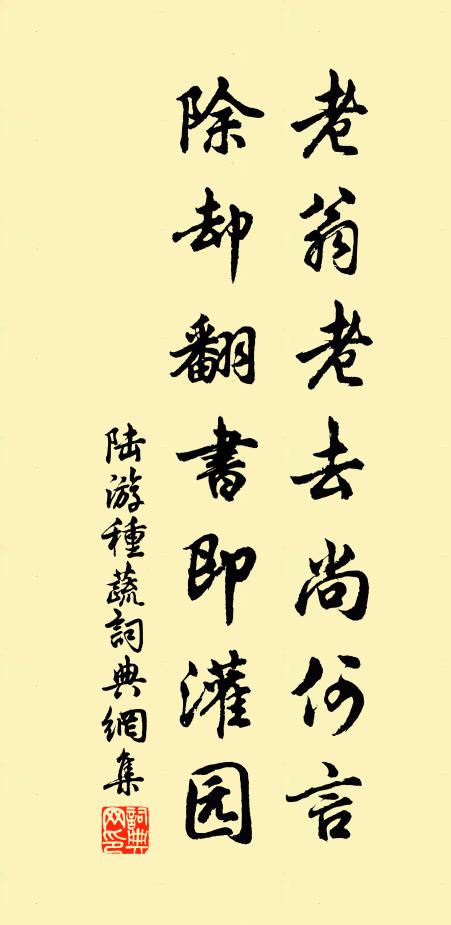 老翁老去尚何言
除却翻書即灌园
陆游種蔬詞典網集
詞典网印